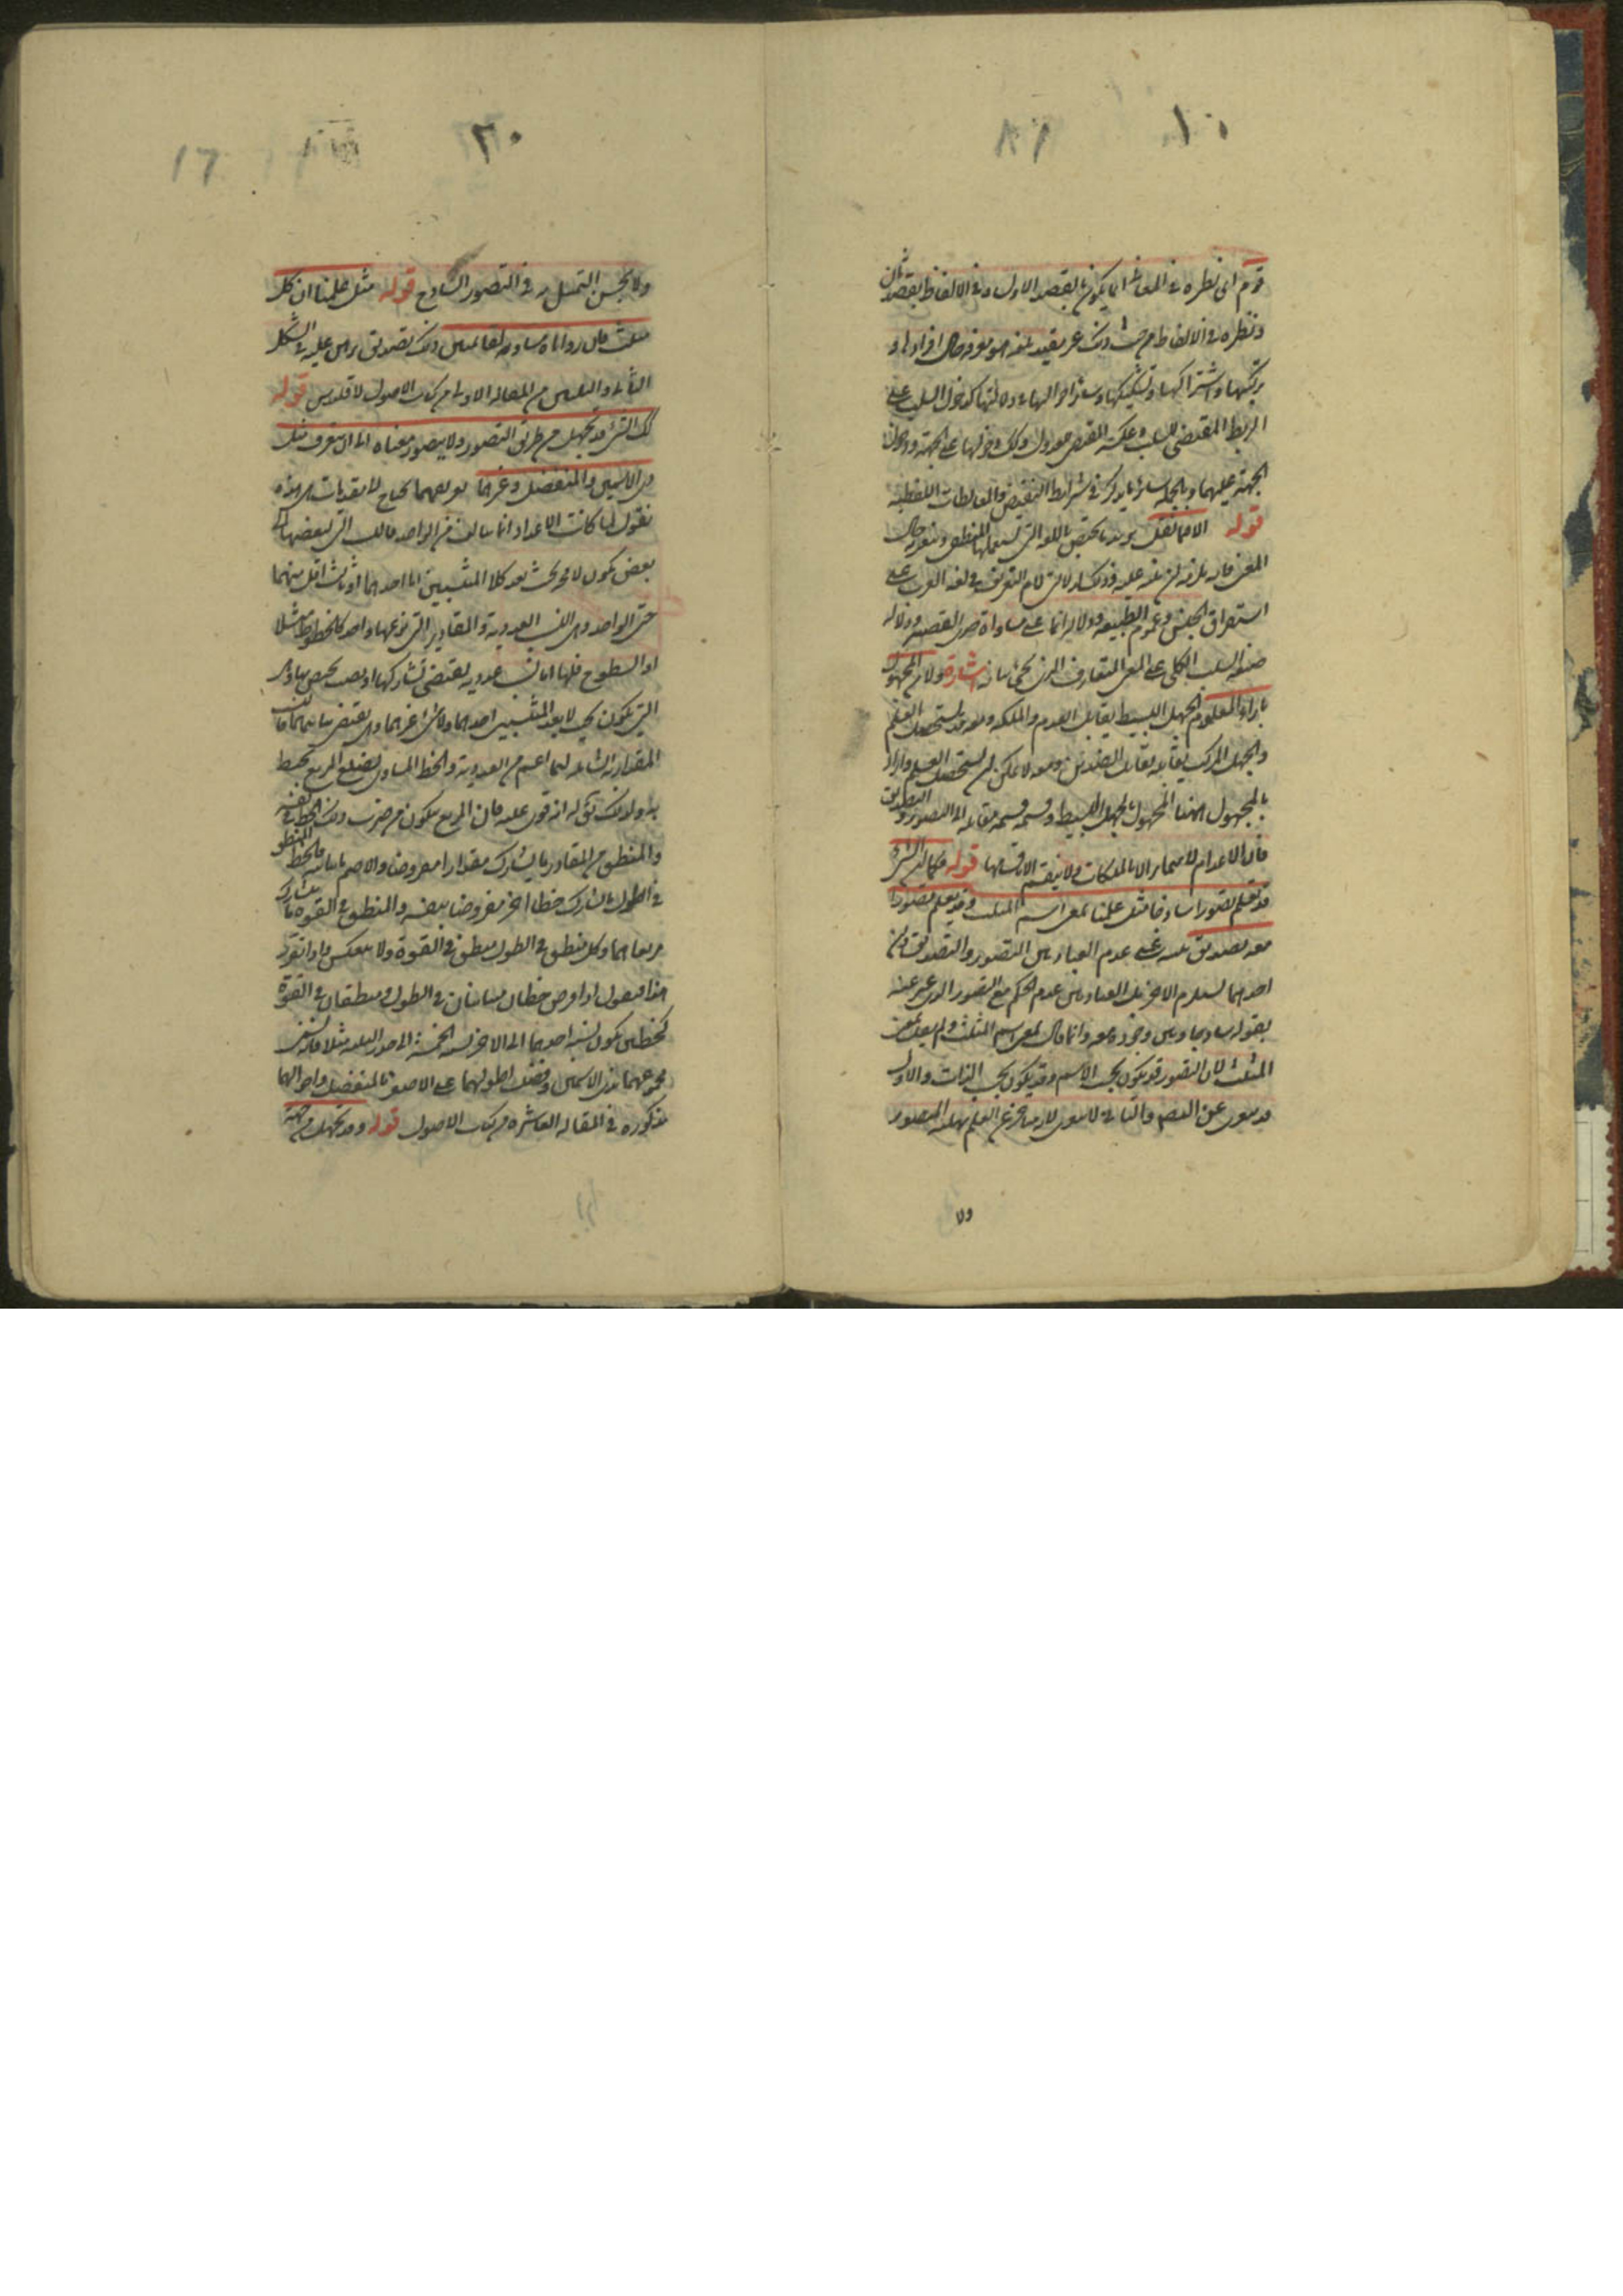 ١٠
قوم اى نظره فى المعانى انما يكون بالقصد الاول و فى الالفاظ بقصد ثان
و نظره فى الالفاظ من حيث ذلك غير مقيد بلغة قوم هو معرفة حال افرادها و
تركيبها و اشتراكها و تشكيكها و سائر احوالها فى دلالتها كدخول السلب على
الربط المقتضى للسلب و عكسه المقتضى للعدول و كذلك دخولها على الجهة و دخول
الجهة عليهما و بالجملة سائر ما يذكر فى شرائط النقيض و المغالطات اللفظية
قوله الا فيما يقل يريد به ما يختص باللغة التى يستعملها المنطقى و يتغير به حال
المعنى فانه يلزمه ان ينبه عليه و ذلك كدلالة لام التعريف فى لغة العرب على
استغراق الجنس و عموم الطبيعة و دلالة انما على مساواة حدى القضية و دلالة
صيغة السلب الكلى على المعنى المتعارف الذى يجئ بيانه اشارة و لان المجهول
بازاء المعلوم الجهل البسيط يقابل العلم تقابل العدم و الملكة و معه قد يستحصل العلم
و الجهل المركب يقابله تقابل الضدين و معه لا يمكن ان يستحصل العلم و اراد
بالمجهول ههنا المجهول بالجهل البسيط و قسمه قسمة مقابله الى التصور و التصديق
فان الاعدام لا تتمايز الا بالملكات و لا ينقسم الا باقسامها قوله فكما ان الشئ
قد يعلم تصورا ساذجا مثل علمنا بمعنى اسم المثلث و قد يعلم تصورا
معه تصديق نبه على عدم العناد بين التصور و التصديق فان
احدهما يستلزم الاخر بل العناد بين عدم الحكم مع التصور الذى عبر عنه
بقوله ساذجا و بين وجوده معه و انما قال بمعنى اسم المثلث و لم يقل بمعنى
المثلث لان التصور قد يكون بحسب الاسم و قد يكون بحسب الذات و الاول
قد يعرى عن التصديق و الثانى لا يعرى لانه متأخر عن العلم بهلية المتصور
ولا
٢٠
١٦
و لا يحسن التمثيل به فى التصور الساذج قوله مثل علمنا ان كل
مثلث فان زواياه مساوية لقائمتين و ذلك تصديق برهن عليه فى الشكل
الثانى و الثلثين من المقالة الاولى من كتاب الاصول لاقليدس قوله
كذلك الشئ قد يجهل من طريق التصور و لا يتصور معناه الى ان يتعرف مثل
ذى الاسمين و المنفصل و غيرهما تعريفهما يحتاج لا مقدمات هى هذه
نقول لما كانت الاعداد انما تتألف من الواحد فالنسب التى لبعضها الى
بعض يكون لا محة بحيث يعد كلا المنتسبين اما احدهما او ثالث اقل منهما
حتى الواحد و هى النسب العددية و المقادير التى نوعها واحد كالخطوط مثلا
او السطوح فلها اما نسب عددية تقتضى تشاركها او نسب تختص بها و هى
التى يكون بحيث لا يعد المنتسبين احدهما و لا شئ غيرهما و هى تقتضى تباينهما فالنسب
المقدارية الشاملة لهما اعم من العددية و الخط المساوى لضلع المربع يحيط
به و لذلك يق له انه قوى عليه فان المربع يتكون من ضرب ذلك الخط فى نفسه
و المنطق من المقادير ما يشارك مقدارا مفروضا و الاصم ما يباينه فالخط المنطق
فى الطول ما يشارك خطا اخر مفروضا بنفسه و المنطق فى القوة ما يتشارك
مربعاهما و كل منطق فى الطول منطق فى القوة و لا ينعكس و اذا تقرر
هذا فنقول اذا فرض خطان متباينان فى الطول و منطقان فى القوة
كخطين يكون نسبة احدهما الى الاخر نسبة الخمسة الى جذر الثلثة مثلا فانه يسمى
مجموعهما بذى الاسمين و فضل اطولهما على الاصغر بالمنفصل و احوالهما
مذكورة فى المقالة العاشرة من كتاب الاصول قوله و قد يجهل من جهة